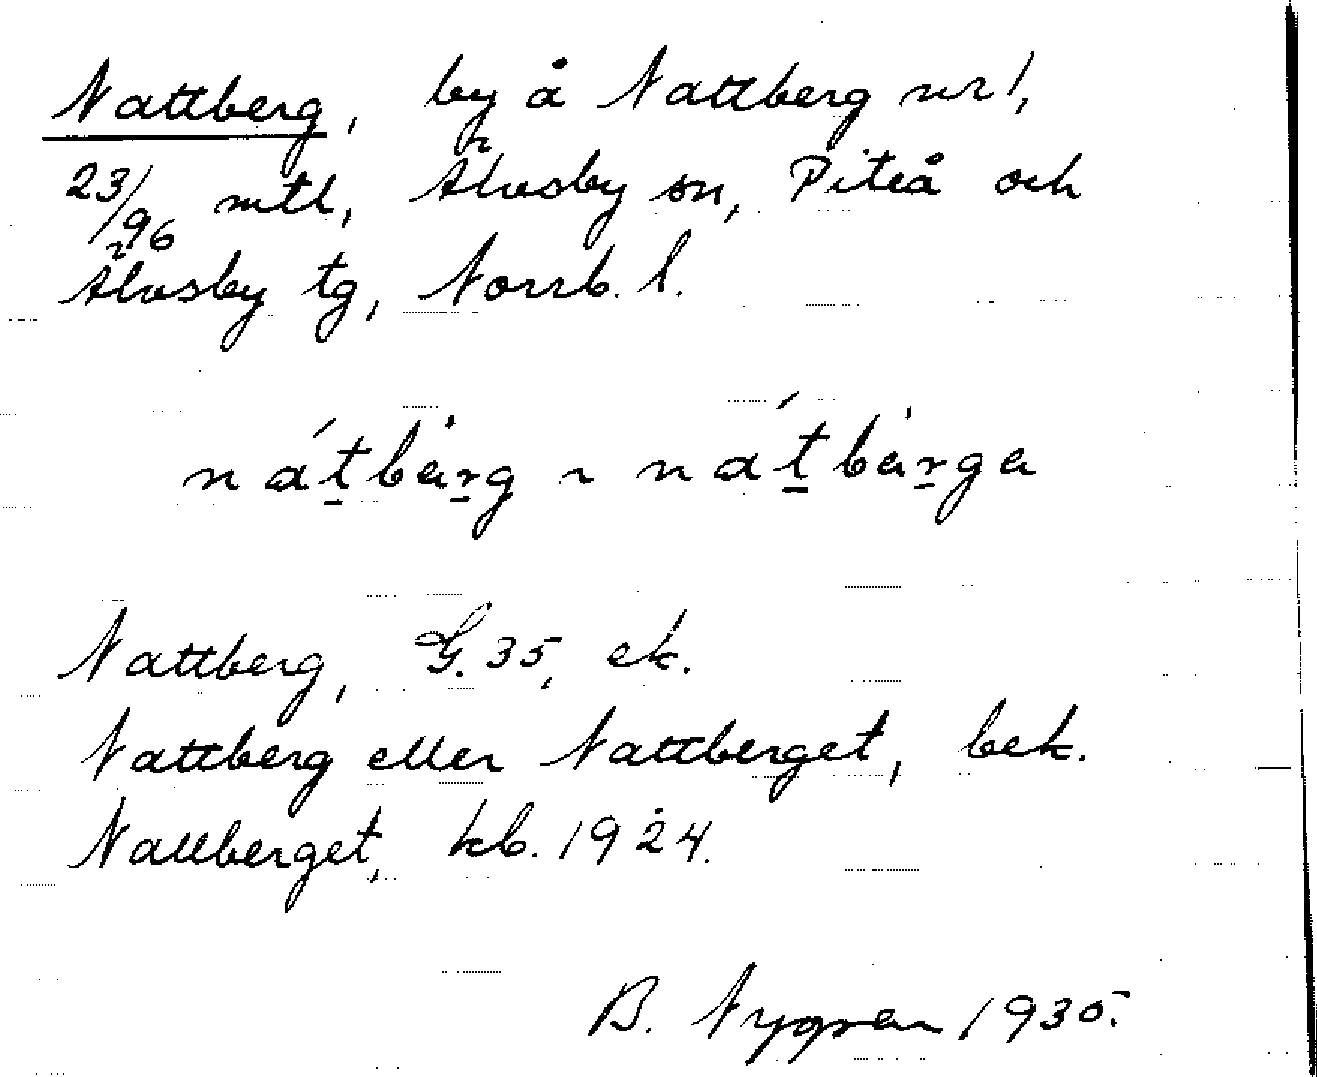 Nattberg, by å Nattberg nr 1,
23/96 mtl, Älvsby sn, Piteå och
Älvsby tg, Norrb. l.
nátbärg ~ nátbärga
Nattberg, G. 35, ek.
Nattberg eller Nattberget, bek.
Nattberget, kb. 1924.
B. Nygren 1935.